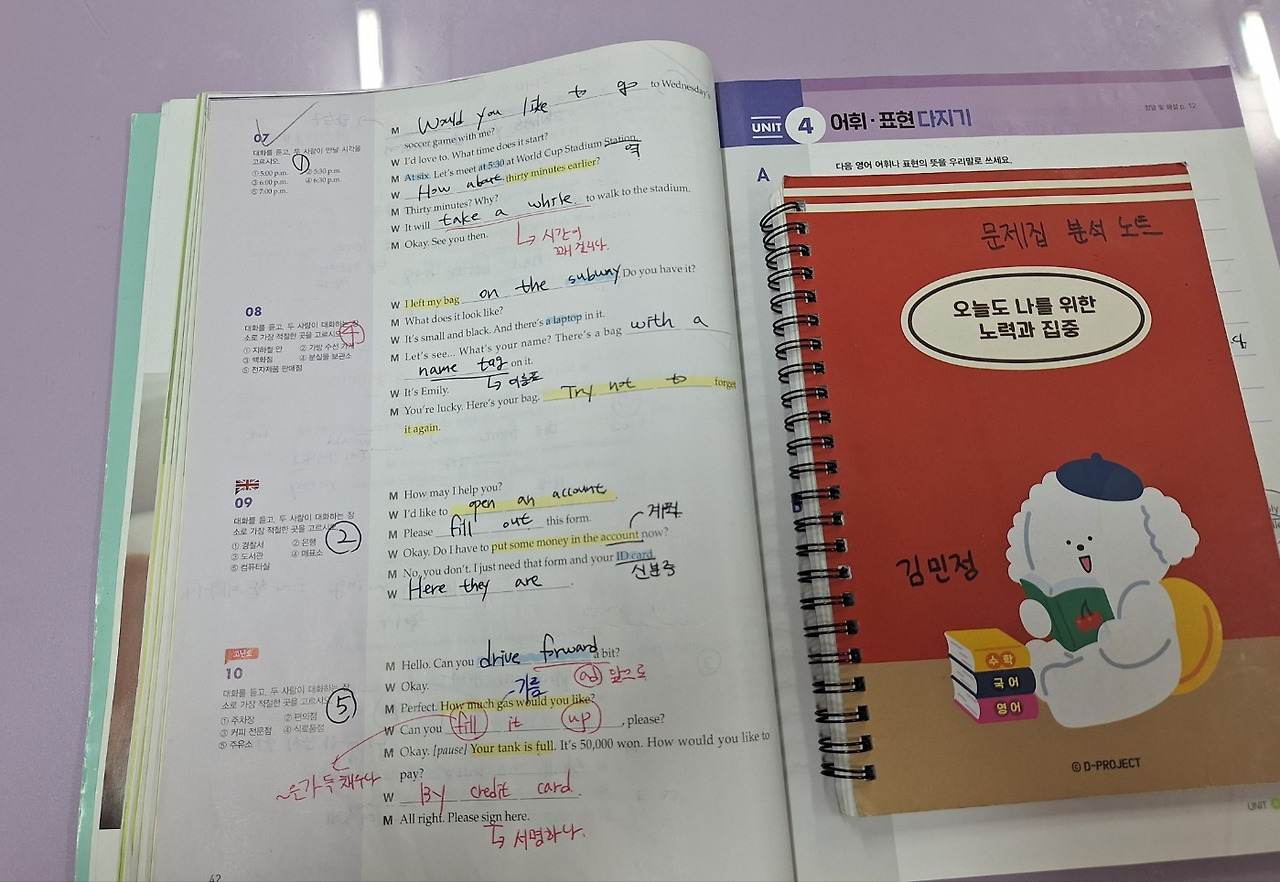 07
대화를 듣고, 두 사람이 만날 시각을
고르시오.
①
① 5:00 p.m. ② 5:30 p.m.
③ 6:00 p.m. ④ 6:30 p.m.
⑤ 7:00 p.m.
M Would you like to go to Wednesday's
soccer game with me?
W I'd love to. What time does it start?
M At six. Let's meet at 5:30 at World Cup Stadium Station.
역
W How about thirty minutes earlier?
M Thirty minutes? Why?
W It will take a while to walk to the stadium.
M Okay. See you then.
시간이
꽤 걸리다.
08
대화를 듣고, 두 사람이 대화하는 장
소로 가장 적절한 곳을 고르시오.
① 지하철 안 ② 가방 수선 가게
③ 백화점 ④ 분실물 보관소
⑤ 전자제품 판매점
W I left my bag on the subway. Do you have it?
M What does it look like?
W It's small and black. And there's a laptop in it.
M Let's see... What's your name? There's a bag with a
name tag on it.
이름표
W It's Emily.
M You're lucky. Here's your bag. Try not to forget
it again.
09
대화를 듣고, 두 사람이 대화하는 장
소로 가장 적절한 곳을 고르시오.
②
① 경찰서 ② 은행
③ 도서관 ④ 매표소
⑤ 컴퓨터실
M How may I help you?
W I'd like to open an account.
M Please fill out this form.
계좌
W Okay. Do I have to put some money in the account now?
M No, you don't. I just need that form and your ID card.
신분증
W Here they are.
고난도
10
대화를 듣고, 두 사람이 대화하는 장
소로 가장 적절한 곳을 고르시오.
⑤
① 주차장 ② 편의점
③ 커피 전문점 ④ 식료품점
⑤ 주유소
M Hello. Can you drive forward a bit?
ad 앞으로
W Okay.
기름
M Perfect. How much gas would you like?
W Can you fill it up, please?
~을 가득 채우다
M Okay. [pause] Your tank is full. It's 50,000 won. How would you like to
pay?
W By credit card.
M All right. Please sign here.
서명하다.
42
UNIT 4 어휘·표현 다지기
정답 및 해설 p. 12
A 다음 영어 어휘나 표현의 뜻을 우리말로 쓰세요.
문제집 분석 노트
오늘도 나를 위한
노력과 집중
김민정
수학
국어
영어
© D-PROJECT
UNIT